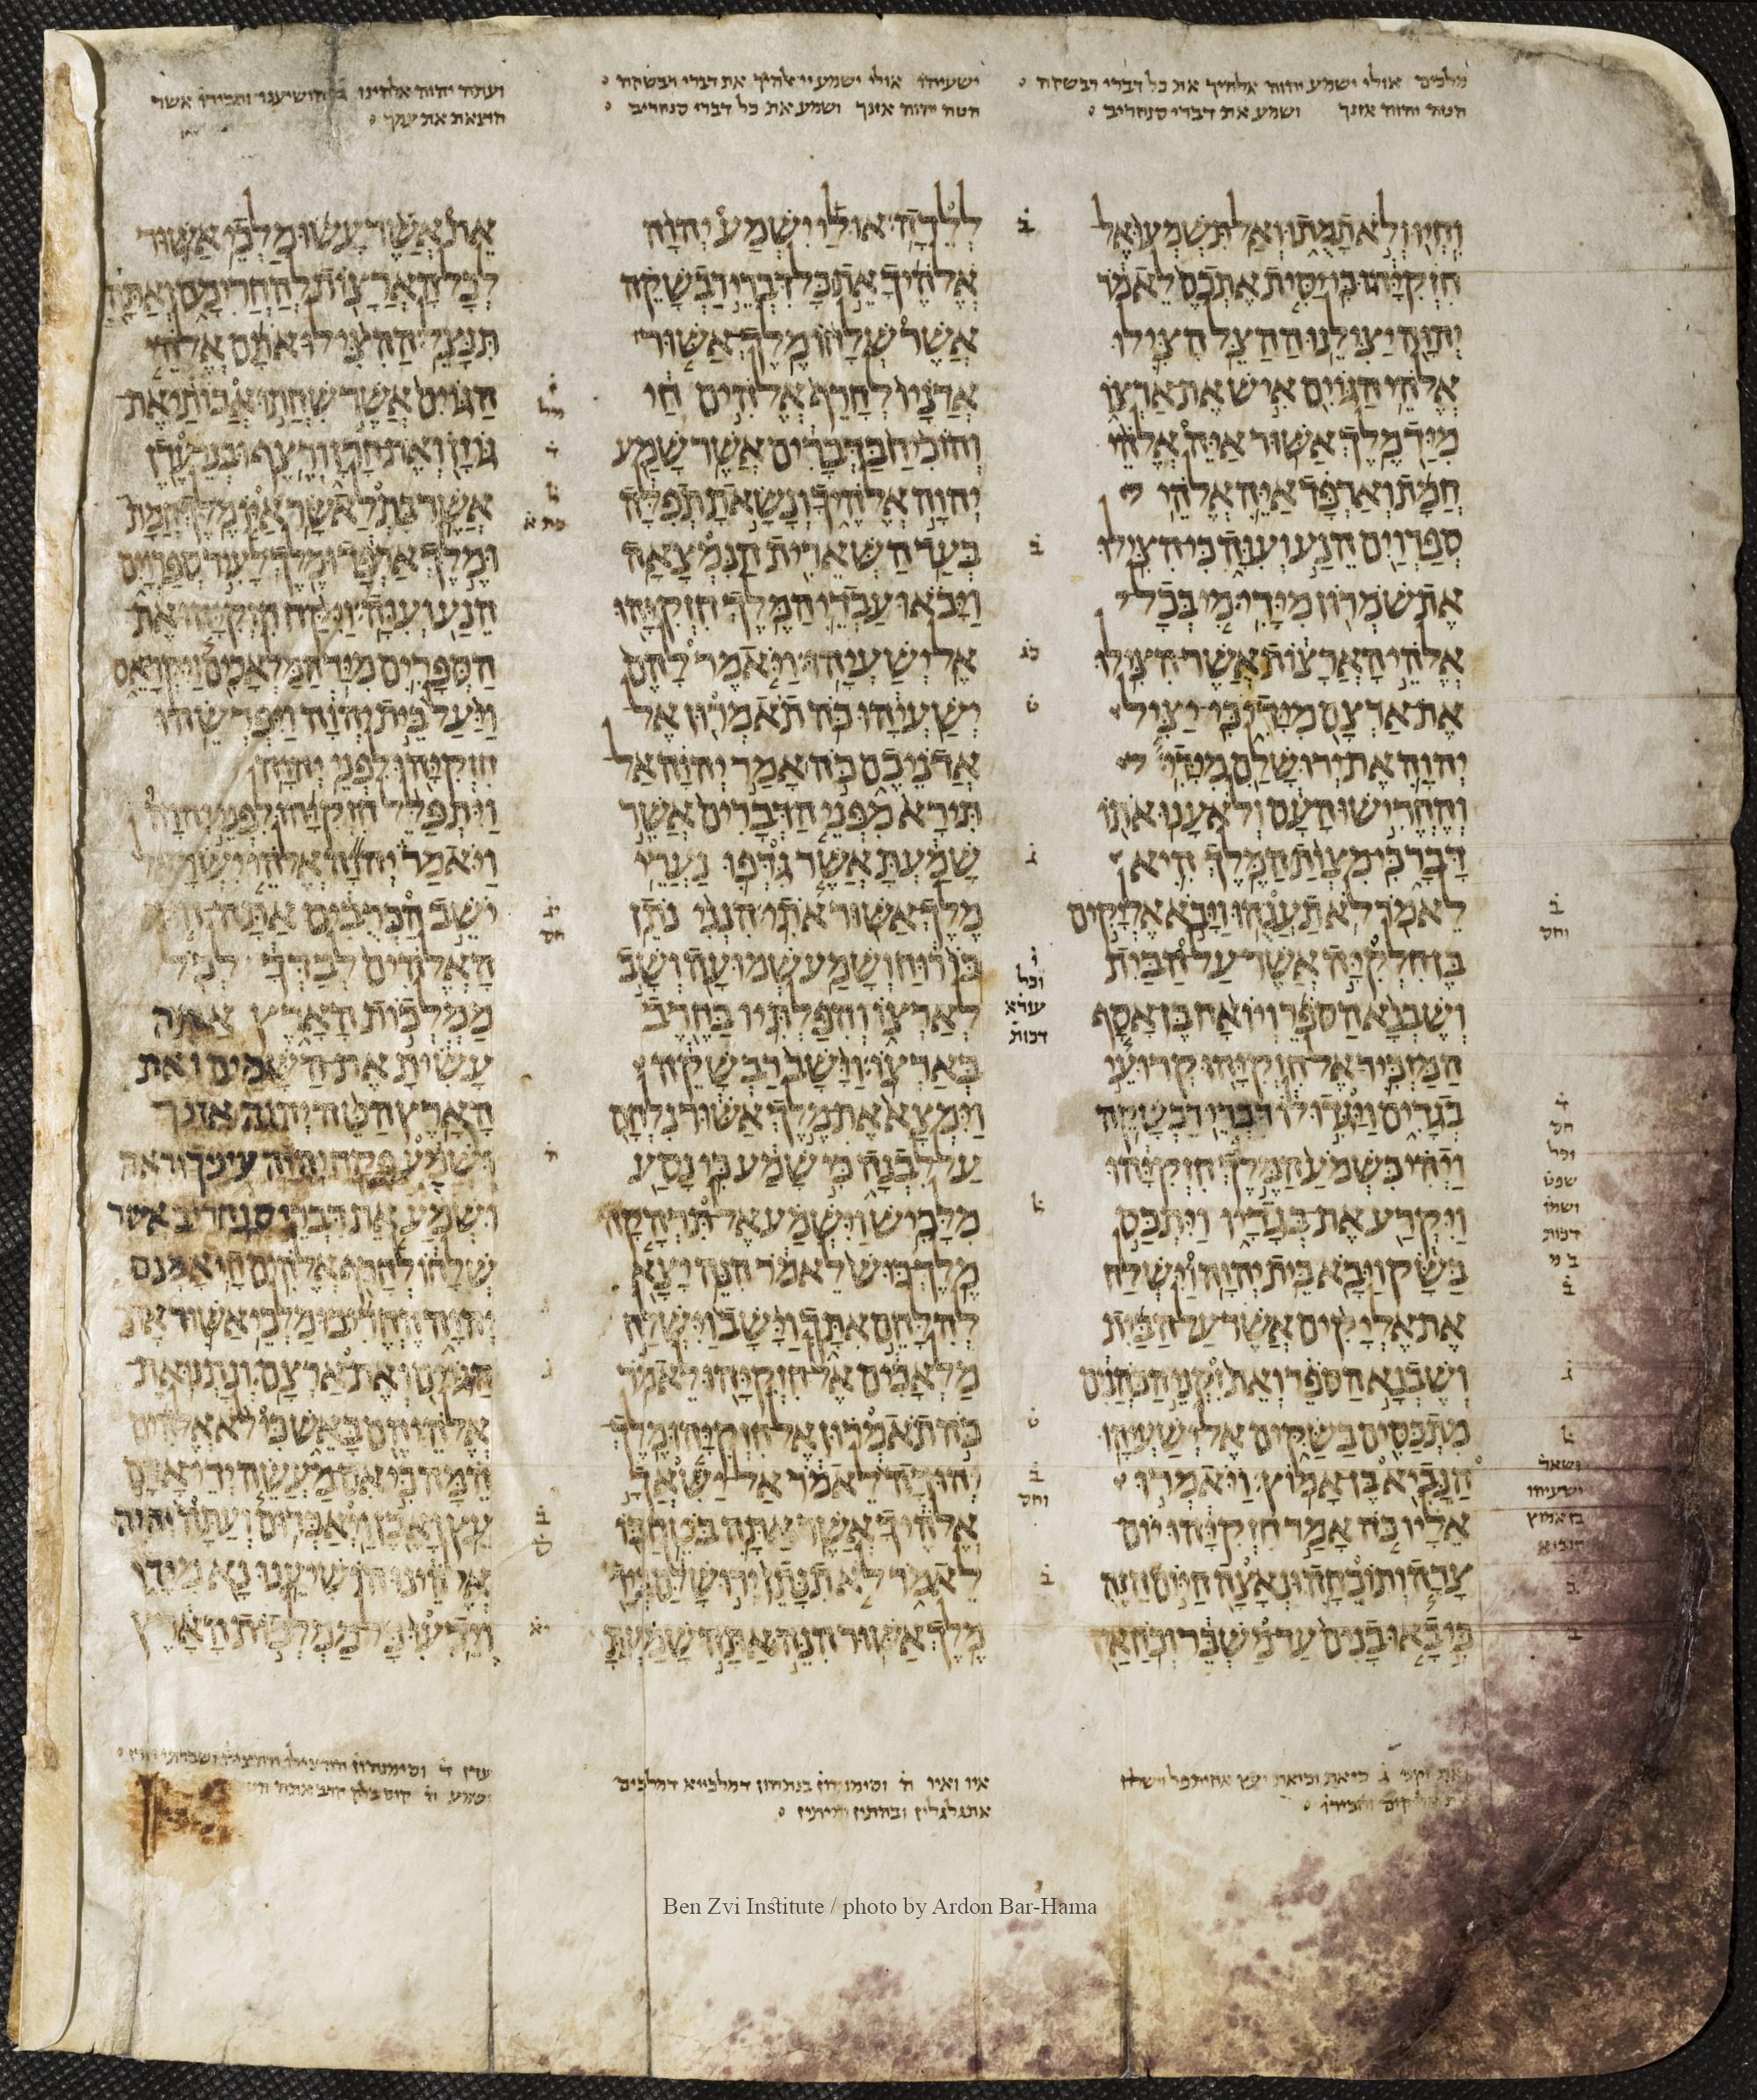 מלכים אולי ישמע יהוה אלהיך את כל דברי רבשקה
הטה יהוה אזנך ושמע את דברי סנחריב
ישעיהו אולי ישמע יי אלהיך את דברי רבשקה
הטה יהוה אזנך ושמע את כל דברי סנחריב
ועתה יהוה אלהינו ב הושיענו וחבירו אשר
הוצאת את עמך
וחיו ולא תמתו ואל תשמעו אל
חזקיהו כי יסית אתכם לאמר
יהוה יצילנו ההצל הצילו
אלהי הגוים איש את ארצו
מיד מלך אשור איה אלהי
חמת וארפד איה אלהי
ספרוים הנע ועוה כי הצילו
את שמרון מידי מי בכל
אלהי הארצות אשר הצילו
את ארצם מידי כי יציל
יהוה את ירושלם מידי
והחרישו העם ולא ענו אתו
דבר כי מצות המלך היא
לאמר לא תענהו ויבא אליקים
בן חלקיה אשר על הבית
ושבנא הספר ויואח בן אסף
המזכיר אל חזקיהו קרועי
בגדים ויגדו לו דברי רבשקה
ויהי כשמע המלך חזקיהו
ויקרע את בגדיו ויתכס
בשק ויבא בית יהוה וישלח
את אליקים אשר על הבית
ושבנא הספר ואת זקני הכהנים
מתכסים בשקים אל ישעיהו
הנביא בן אמוץ ויאמרו
אליו כה אמר חזקיהו יום
צרה ותוכחה ונאצה היום הזה
כי באו בנים עד משבר וכח אין
ללדה אולי ישמע יהוה
אלהיך את כל דברי רבשקה
אשר שלחו מלך אשור
אדניו לחרף אלהים חי
והוכיח בדברים אשר שמע
יהוה אלהיך ונשאת תפלה
בעד השארית הנמצאה
ויבאו עבדי המלך חזקיהו
אל ישעיהו ויאמר להם
ישעיהו כה תאמרון אל
אדניכם כה אמר יהוה אל
תירא מפני הדברים אשר
שמעת אשר גדפו נערי
מלך אשור אתי הנני נתן
בו רוח ושמע שמועה ושב
לארצו והפלתיו בחרב
בארצו וישב רבשקה
וימצא את מלך אשור נלחם
על לבנה כי שמע כי נסע
מלכיש וישמע אל תרהקה
מלך כוש לאמר הנה יצא
להלחם אתך וישב וישלח
מלאכים אל חזקיהו לאמר
כה תאמרון אל חזקיהו מלך
יהודה לאמר אל ישאך
אלהיך אשר אתה בטח בו
לאמר לא תנתן ירושלם ביד
מלך אשור הנה אתה שמעת
את אשר עשו מלכי אשור
לכל הארצות להחרימם ואתה
תנצל ההצילו אתם אלהי
הגוים אשר שחתו אבותי את
גוזן ואת חרן ורצף ובני עדן
אשר בתלאשר איו מלך חמת
ומלך ארפד ומלך לעיר ספרוים
הנע ועוה ויקח חזקיהו את
הספרים מיד המלאכים ויקראם
ויעל בית יהוה ויפרשהו
חזקיהו לפני יהוה
ויתפלל חזקיהו לפני יהוה
ויאמר יהוה אלהי ישראל
ישב הכרבים אתה הוא
האלהים לבדך לכל
ממלכות הארץ אתה
עשית את השמים ואת
הארץ הטה יהוה אזנך
ושמע פקח יהוה עיניך וראה
ושמע את דברי סנחריב אשר
שלחו לחרף אלהים חי אמנם
יהוה החריבו מלכי אשור את
הגוים ואת ארצם ונתנו את
אלהיהם באש כי לא אלהים
המה כי אם מעשה ידי אדם
עץ ואבן ויאבדום ועתה יהוה
אלהינו הושיענו נא מידו
וידעו כל ממלכות הארץ
איו ואיו
Ben Zvi Institute / photo by Ardon Bar-Hama